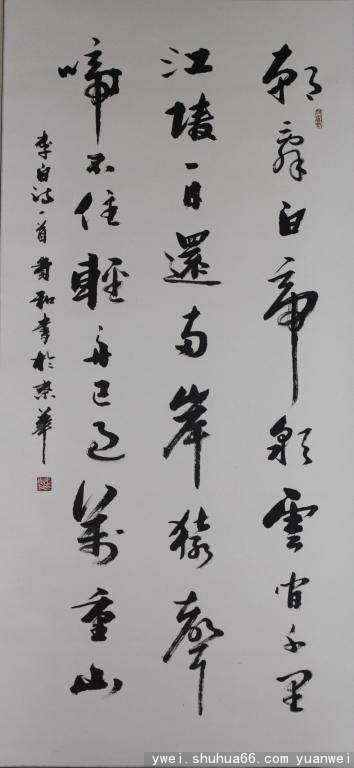 朝辭白帝彩雲間千里
江陵一日還兩岸猿聲
啼不住輕舟已過萬重山
李白詩一首 和書於京華
ywei.shuhua66.com yuanwei